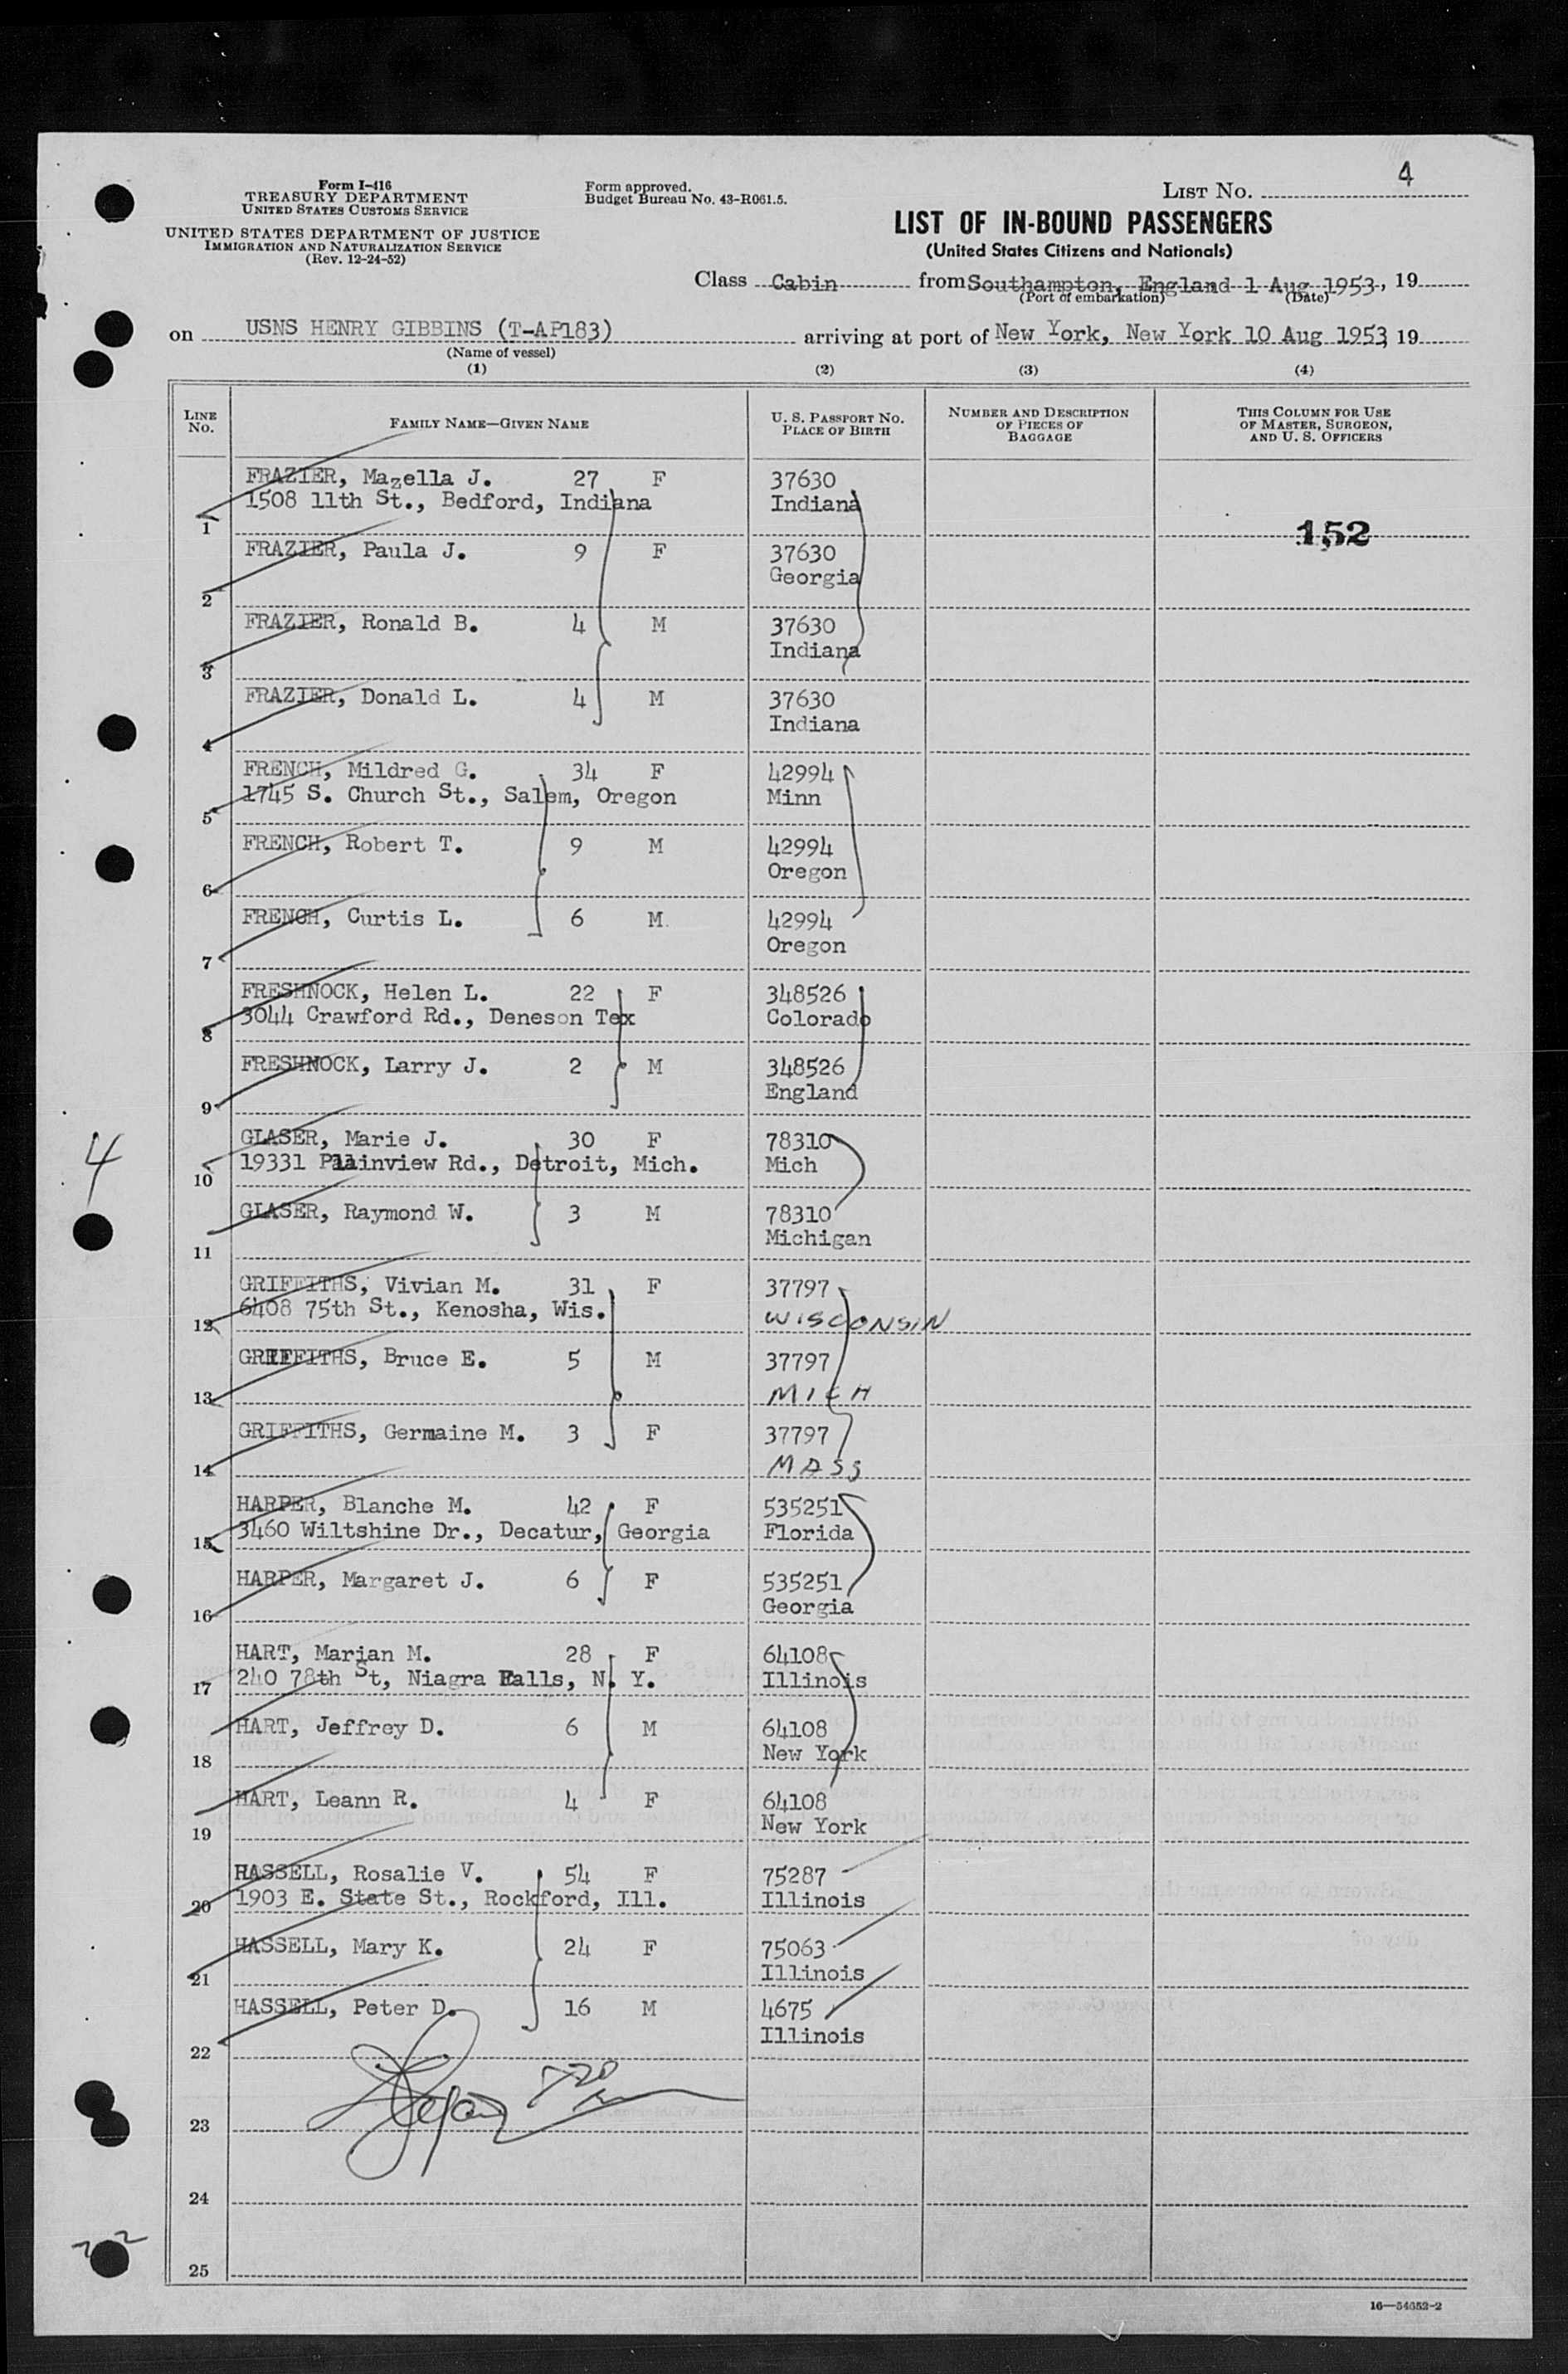 Form I-416
TREASURY DEPARTMENT
UNITED STATES CUSTOMS SERVICE
UNITED STATES DEPARTMENT OF JUSTICE
IMMIGRATION AND NATURALIZATION SERVICE
(Rev. 12-24-52)
Form approved.
Budget Bureau No. 43-R061.5.
LIST No. 4
LIST OF IN-BOUND PASSENGERS
(United States Citizens and Nationals)
Class Cabin from Southampton, England 1 Aug 1953, 19
(Port of embarkation) (Date)
on USNS HENRY GIBBINS (T-AP183) arriving at port of New York, New York 10 Aug 1953, 19
(Name of vessel)
(1) (2) (3) (4)
LINE No. FAMILY NAME—GIVEN NAME U. S. PASSPORT NO. PLACE OF BIRTH NUMBER AND DESCRIPTION OF PIECES OF BAGGAGE THIS COLUMN FOR USE OF MASTER, SURGEON, AND U. S. OFFICERS
FRAZIER, Mazella J. 27 F 37630
1 1508 11th St., Bedford, Indiana Indiana
152
FRAZIER, Paula J. 9 F 37630
2 Georgia
FRAZIER, Ronald B. 4 M 37630
3 Indiana
FRAZIER, Donald L. 4 M 37630
4 Indiana
FRENCH, Mildred G. 34 F 42994
5 1745 S. Church St., Salem, Oregon Minn
FRENCH, Robert T. 9 M 42994
6 Oregon
FRENCH, Curtis L. 6 M 42994
7 Oregon
FRESHNOCK, Helen L. 22 F 348526
8 3044 Crawford Rd., Deneson Tex Colorado
FRESHNOCK, Larry J. 2 M 348526
9 England
GLASER, Marie J. 30 F 78310
10 19331 Plainview Rd., Detroit, Mich. Mich
4
GLASER, Raymond W. 3 M 78310
11 Michigan
GRIFFITHS, Vivian M. 31 F 37797
12 6408 75th St., Kenosha, Wis. WISCONSIN
GRIFFITHS, Bruce E. 5 M 37797
13 MICH
GRIFFITHS, Germaine M. 3 F 37797
14 MASS
HARPER, Blanche M. 42 F 535251
15 3460 Wiltshine Dr., Decatur, Georgia Florida
HARPER, Margaret J. 6 F 535251
16 Georgia
HART, Marian M. 28 F 64108
17 240 78th St, Niagra Falls, N. Y. Illinois
HART, Jeffrey D. 6 M 64108
18 New York
HART, Leann R. 4 F 64108
19 New York
HASSELL, Rosalie V. 54 F 75287
20 1903 E. State St., Rockford, Ill. Illinois
HASSELL, Mary K. 24 F 75063
21 Illinois
HASSELL, Peter D. 16 M 4675
22 Illinois
23
24
25
16—54652-2